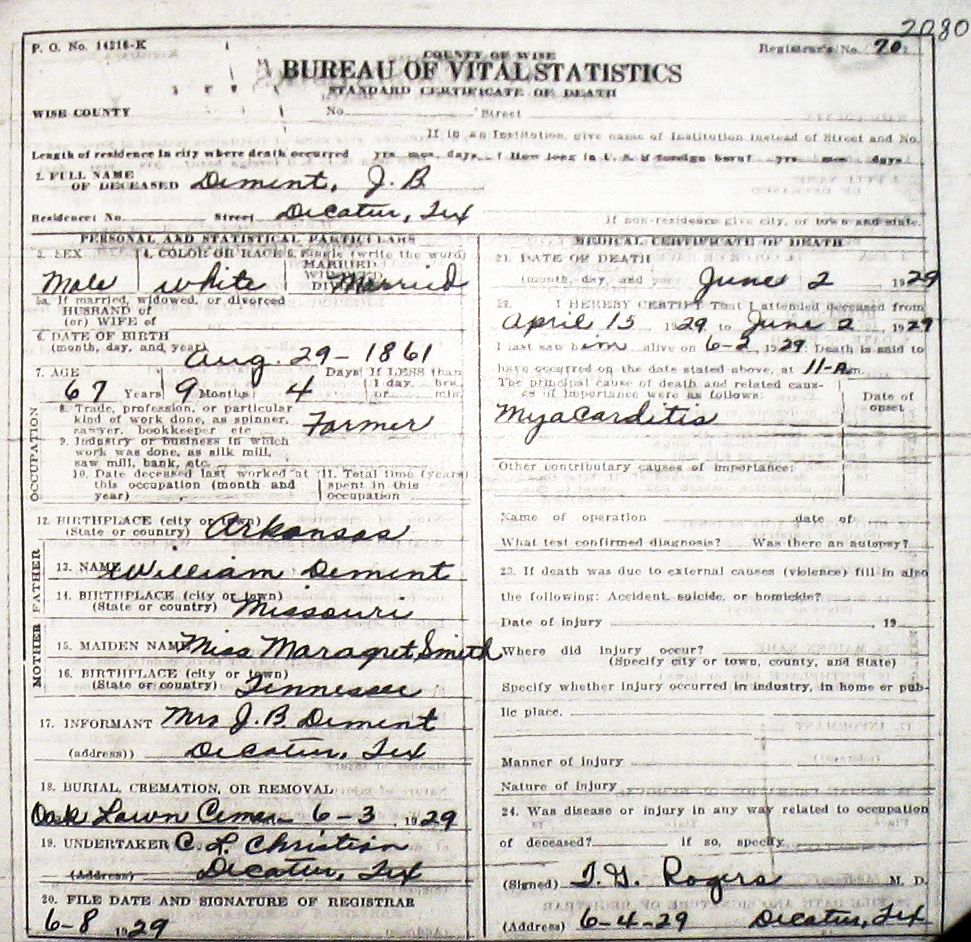 2080
P. O. No. 14216-K
Registrar's No. 20
COUNTY OF WISE
BUREAU OF VITAL STATISTICS
STANDARD CERTIFICATE OF DEATH
WISE COUNTY No. Street
If in an Institution, give name of Institution instead of Street and No.
Length of residence in city where death occurred yrs. mos. days. How long in U. S. if foreign born? yrs. mos. days
2. FULL NAME
OF DECEASED Diment, J. B.
Residence: No. Street Decatur, Tex
If non-residence give city, or town and state.
PERSONAL AND STATISTICAL PARTICULARS
3. SEX 4. COLOR OR RACE 5. Single (write the word)
MARRIED
WIDOWED
Male White Married
5a. If married, widowed, or divorced
HUSBAND of
(or) WIFE of
6. DATE OF BIRTH
(month, day, and year) Aug. 29-1861
7. AGE Days If LESS than
67 Years 9 Months 4 1 day, hrs.
or min.
OCCUPATION
8. Trade, profession, or particular
kind of work done, as spinner,
sawyer, bookkeeper etc. Farmer
9. Industry or business in which
work was done, as silk mill,
saw mill, bank, etc.
10. Date deceased last worked at
this occupation (month and
year)
11. Total time (years)
spent in this
occupation
12. BIRTHPLACE (city or town)
(State or country) Arkansas
FATHER
13. NAME William Diment
14. BIRTHPLACE (city or town)
(State or country) Missouri
MOTHER
15. MAIDEN NAME Miss Maragret Smith
16. BIRTHPLACE (city or town)
(State or country) Tennessee
17. INFORMANT Mrs J. B. Diment
(address)) Decatur, Tex
18. BURIAL, CREMATION, OR REMOVAL
Oak Lawn 6-3 1929
19. UNDERTAKER C. L. Christian
(Address) Decatur, Tex
20. FILE DATE AND SIGNATURE OF REGISTRAR
6-8 1929
MEDICAL CERTIFICATE OF DEATH
21. DATE OF DEATH
(month, day, and year) June 2 1929
22. I HEREBY CERTIFY That I attended deceased from
April 15 1929 to June 2 1929
I last saw him alive on 6-2 1929 Death is said to
have occurred on the date stated above, at 11-A m.
The principal cause of death and related causes
of importance were as follows:
Date of
onset
Myacarditis
Other contributory causes of importance:
Name of operation date of
What test confirmed diagnosis? Was there an autopsy?
23. If death was due to external causes (violence) fill in also
the following: Accident, suicide, or homicide?
Date of injury 19
Where did injury occur?
(Specify city or town, county, and State)
Specify whether injury occurred in industry, in home or pub-
lic place.
Manner of injury
Nature of injury
24. Was disease or injury in any way related to occupation
of deceased? if so, specify
(Signed) T. G. Rogers M. D.
(Address) 6-4-29 Decatur, Tex